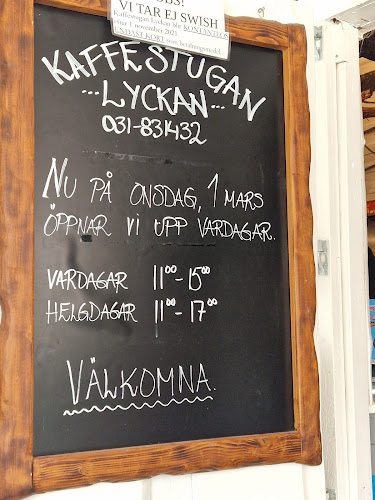 OBS!
VI TAR EJ SWISH
Kaffestugan Lyckan blir KONTANTLÖS
1 november 2021
ENDAST KORT som betalningsmedel
KAFFESTUGAN
LYCKAN
031-831432
NU PÅ ONSDAG, 1 MARS
ÖPPNAR VI UPP VARDAGAR.
VARDAGAR 11⁰⁰-15⁰⁰
HELGDAGAR 11⁰⁰-17⁰⁰
VÄLKOMNA.